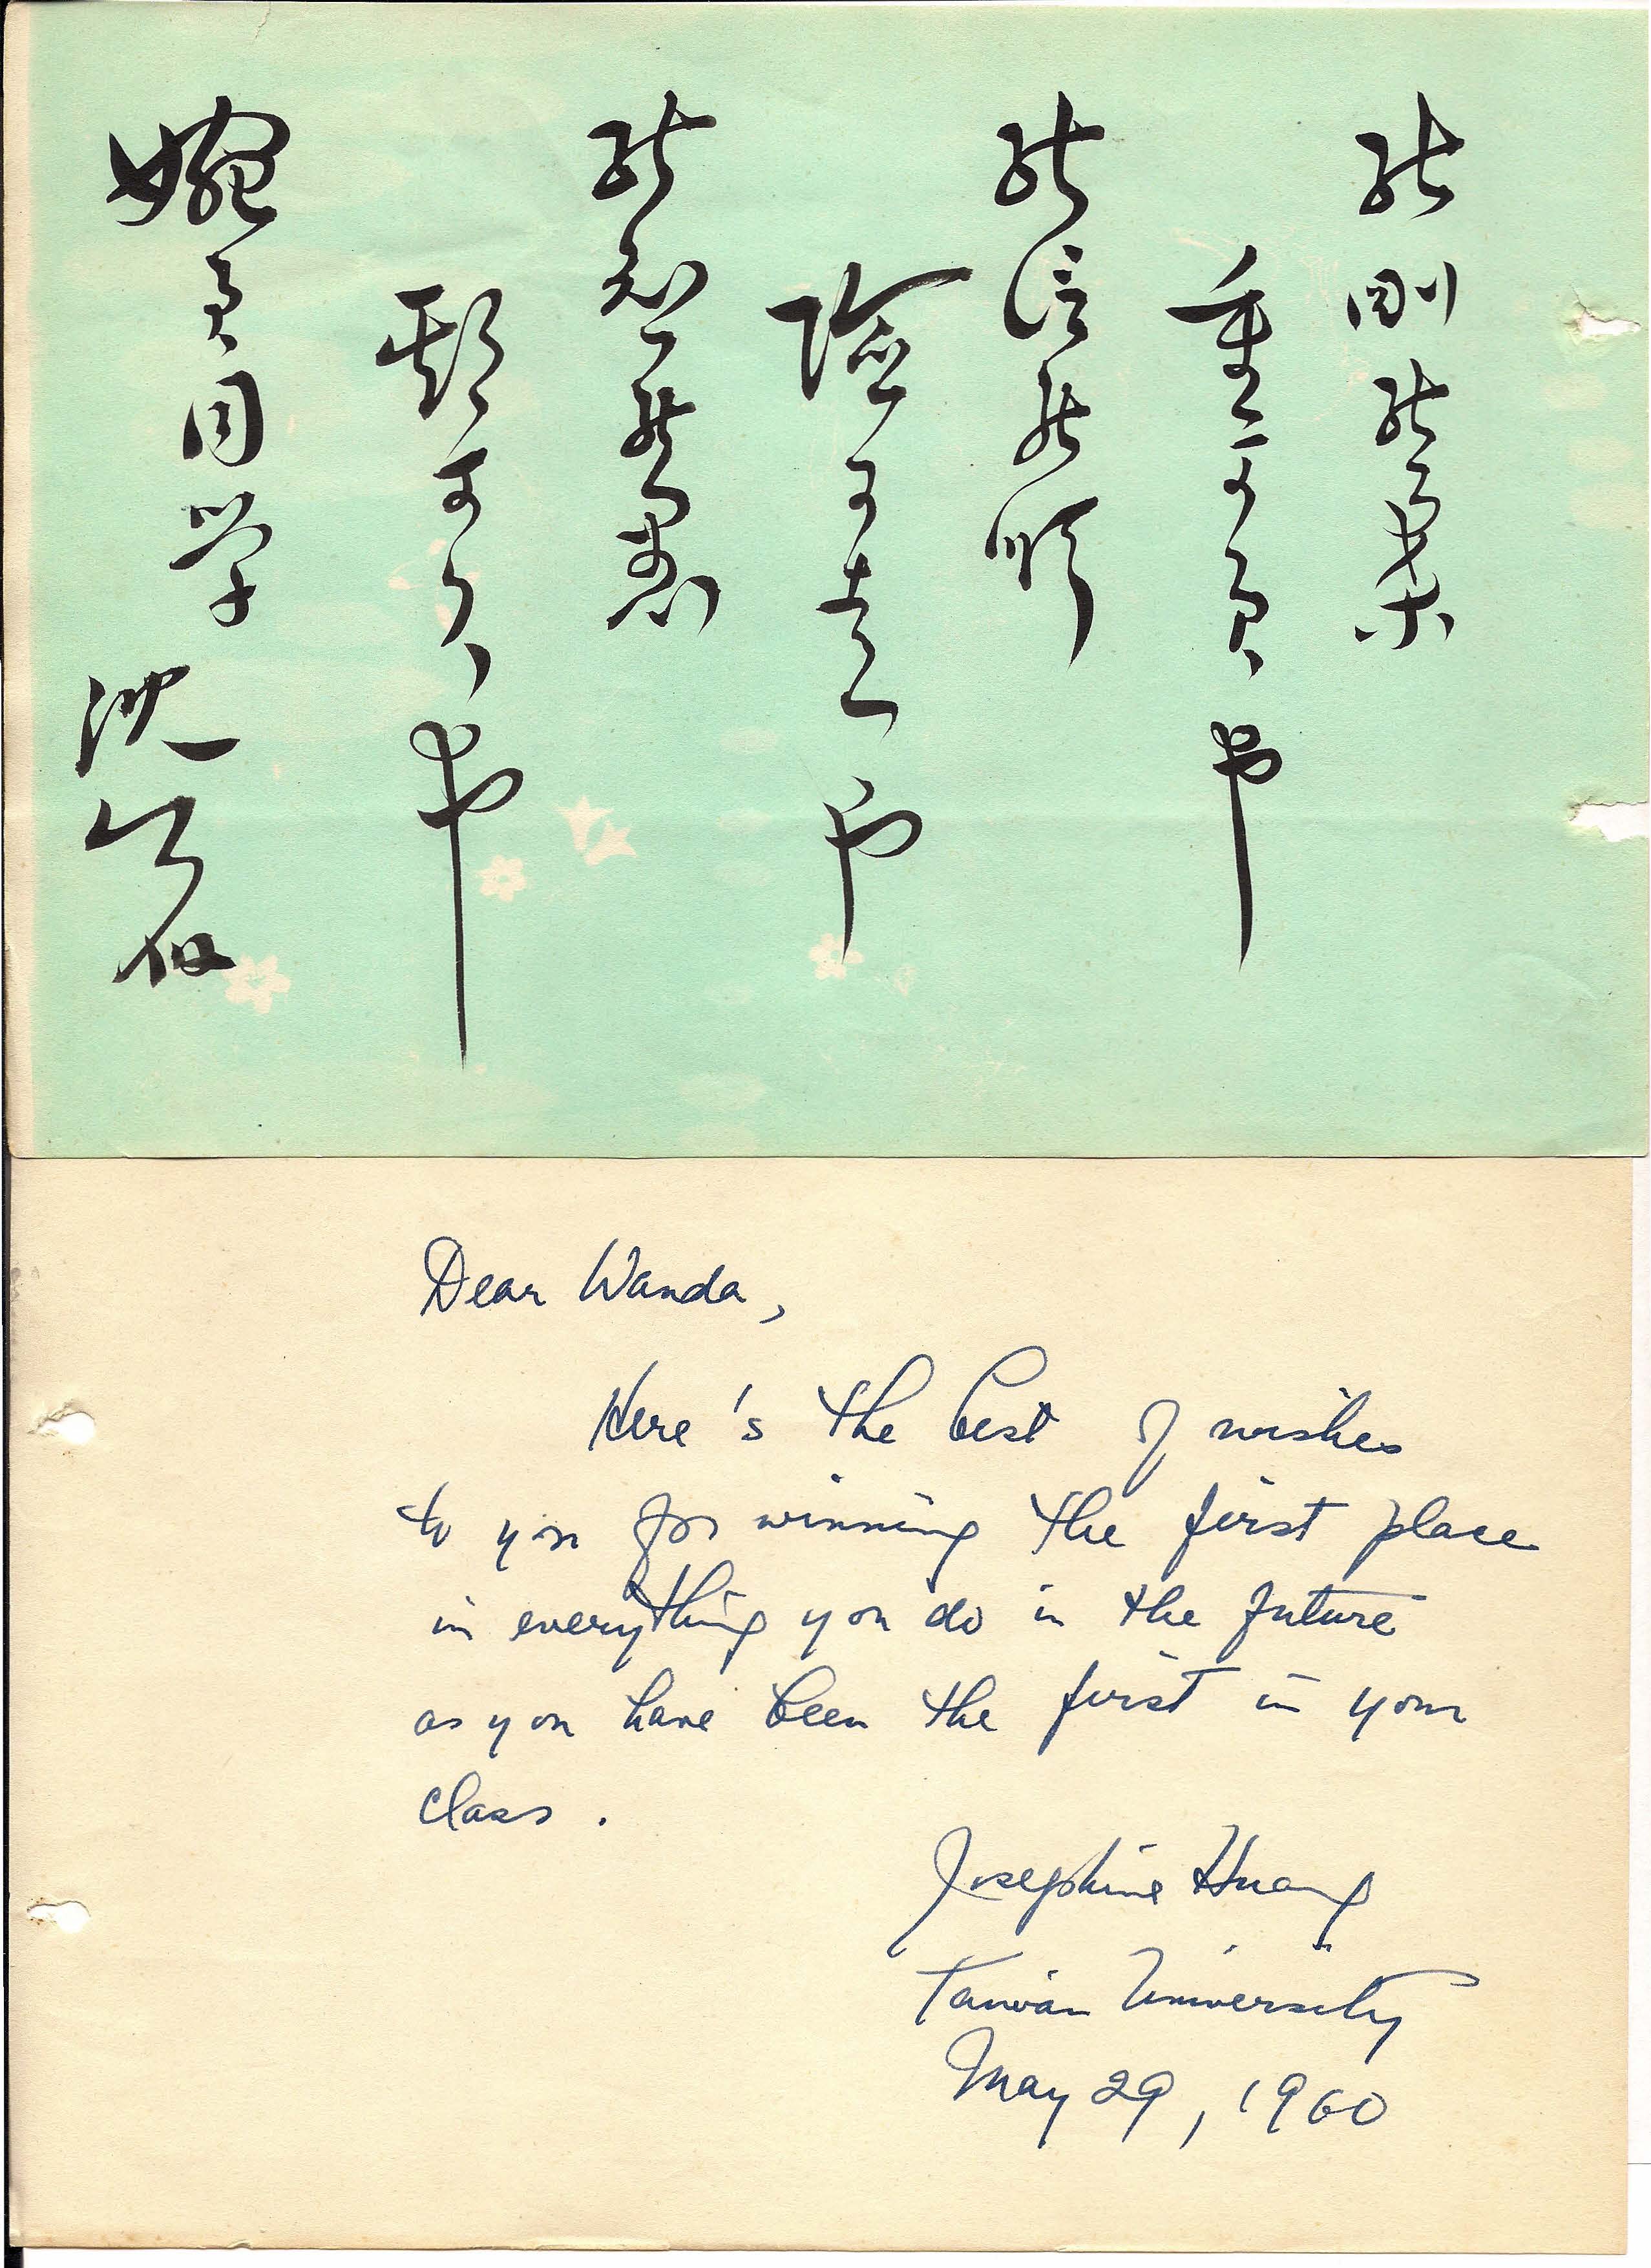 能刚能柔
重可負也
能信能順
險可走也
能知能愚
期可久也
婉貞同学 沈刚伯
Dear Wanda,
Here's the best of wishes
to you for winning the first place
in everything you do in the future
as you have been the first in your
class.
Josephine Huang
Taiwan University
May 29, 1960